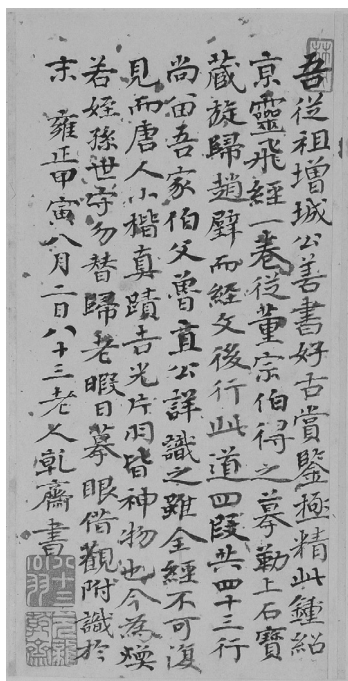 吾從祖增城公善書好古賞鑒極精此鍾紹
京靈飛經一卷從董宗伯得之摹勒上石寶
藏旋歸趙壁而經文後行此道四段共四十三行
尚留吾家伯父曾直公詳識之雖全經不可復
見而唐人小楷真蹟吉光片羽皆神物也今為煐
若姪孫世守勿替歸老暇日摹眼借觀附識於
末 雍正甲寅八月二日八十三老人乾齋書